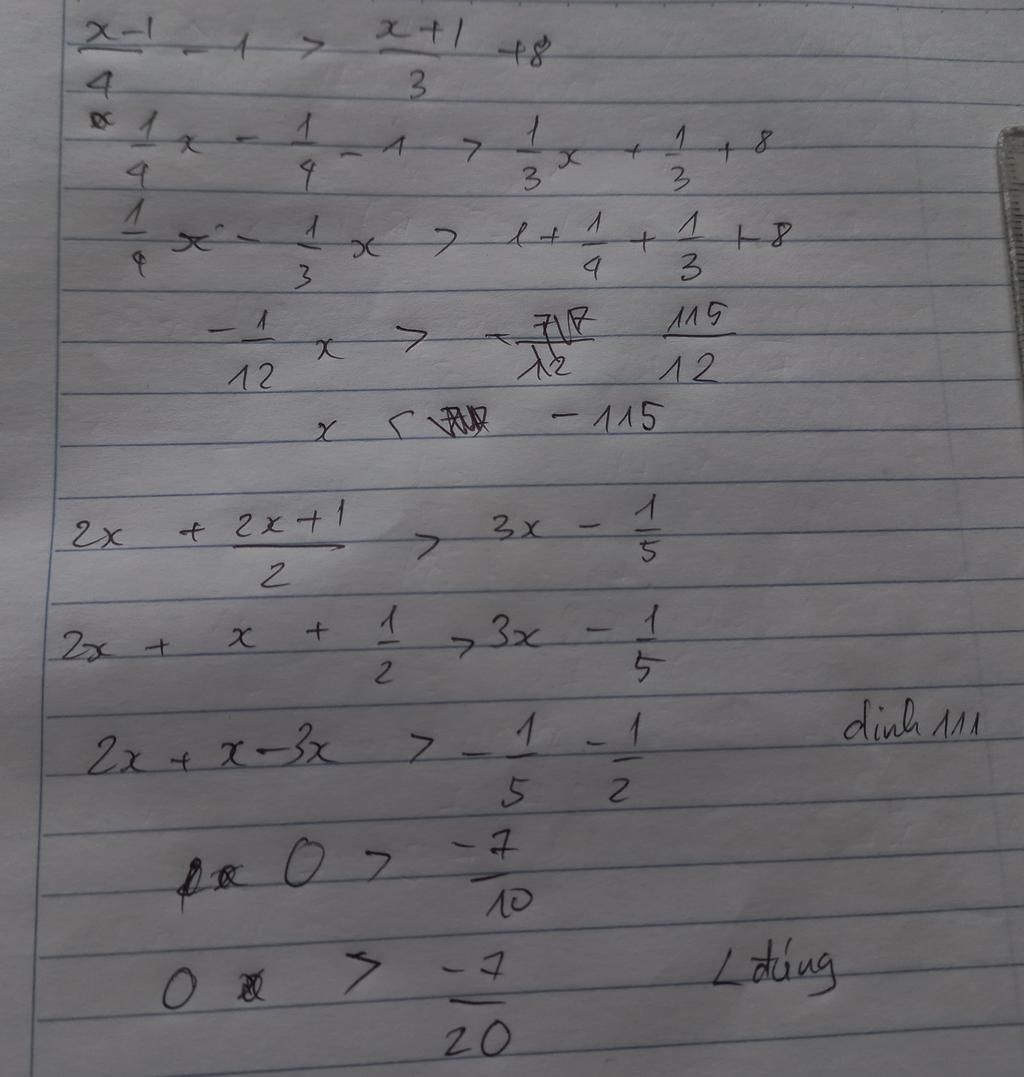 x-1/4 - 1 > x+1/3 + 8
1/4 x - 1/4 - 1 > 1/3 x + 1/3 + 8
1/4 x - 1/3 x > 1 + 1/4 + 1/3 + 8
-1/12 x > 115/12
x < -115
2x + 2x+1/2 > 3x - 1/5
2x + x + 1/2 > 3x - 1/5
2x + x - 3x > -1/5 - 1/2
0 > -7/10
0 > -7/20